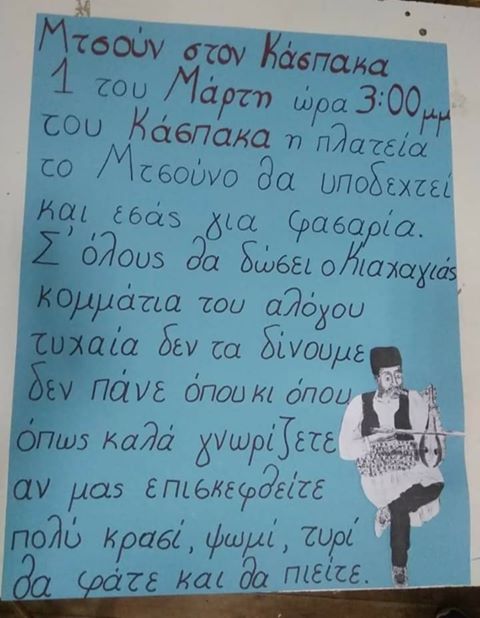 Μτσούν στον Κάσπακα
1 του Μάρτη ώρα 3:00μμ
του Κάσπακα η πλατεία
το Μτσούνο θα υποδεχτεί
και εσάς για φασαρία.
Σ' όλους θα δώσει ο Κιαχαγιάς
κομμάτια του αλόγου
τυχαία δεν τα δίνουμε
δεν πάνε όπου κι όπου
όπως καλά γνωρίζετε
αν μας επισκεφθείτε
πολύ κρασί, ψωμί, τυρί
θα φάτε και θα πιείτε.